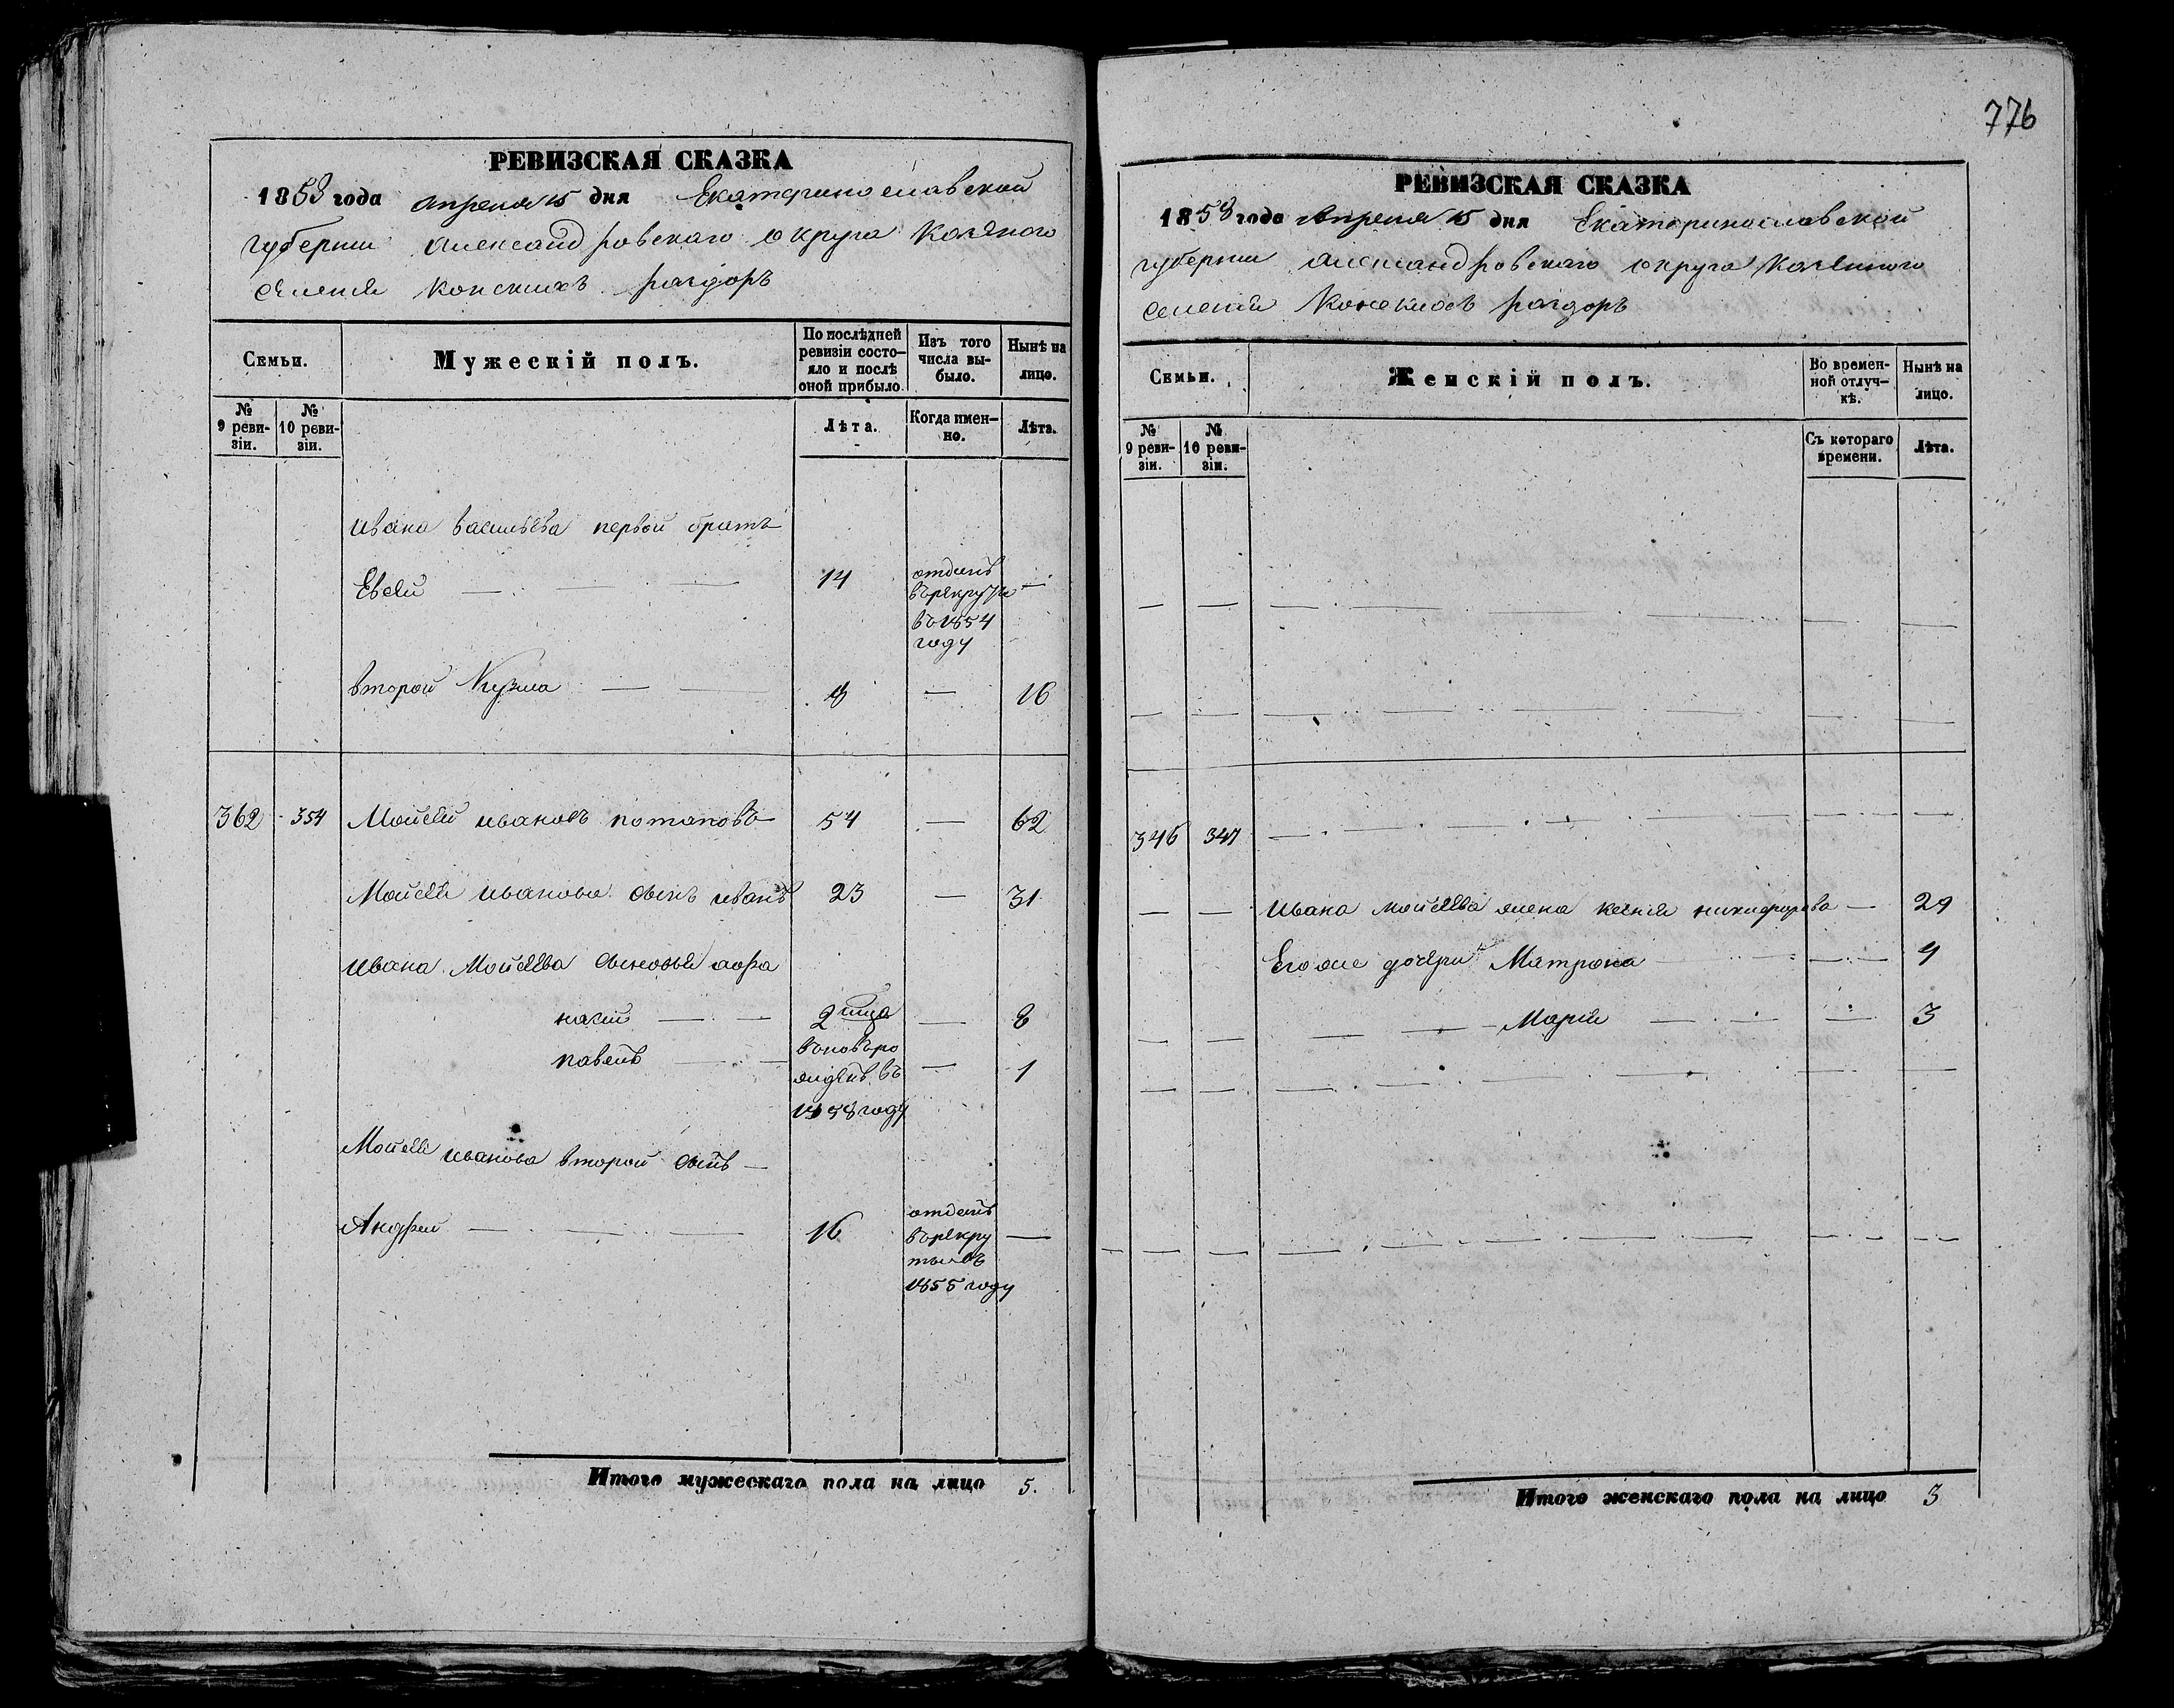 776
РЕВИЗСКАЯ СКАЗКА
1858 года апреля 15 дня Екатеринославской
губернии александровскаго округа казеного
селения конскихъ раздоръ
Семьи.
Мужескій полъ.
По послѣдней ревизіи состо- яло и послѣ оной прибыло.
Изъ того числа вы- было.
Нынѣ на лицо.
№ 9 реви- зіи.
№ 10 реви- зіи.
Лѣта.
Когда имен- но.
Лѣта.
Ивана васильева первой братъ
Евсей — — — 14 отданъ —
въ рекруты
въ 1854
году
второй Кузма — — 8 — 16
362 354 Мойсей ивановъ потаповъ 54 — 62
Мойсея иванова сынъ иванъ 23 — 31
Ивана Мойсеева сыновья афа
насий — — 2 — 8
павелъ — — вновь ро — 1
жденъ въ
1858 году
Мойсея иванова второй сынъ —
Андрей — — — 16 отданъ —
въ рекру
ты въ
1855 году
Итого мужескаго пола на лицо 5.
РЕВИЗСКАЯ СКАЗКА
1858 года Апреля 15 дня Екатеринославской
губернии александровскаго округа казенного
селения Конскихъ раздоръ
Семьи.
Женскій полъ.
Во времен- ной отлуч- кѣ.
Нынѣ на лицо.
№ 9 реви- зіи.
№ 10 реви- зіи.
Съ котораго времени.
Лѣта.
346 347
— — Ивана мойсеева жена ксения никифорова — 29
Его же дочери Матрона — 4
— — Мария — — 3
Итого женскаго пола на лицо 3